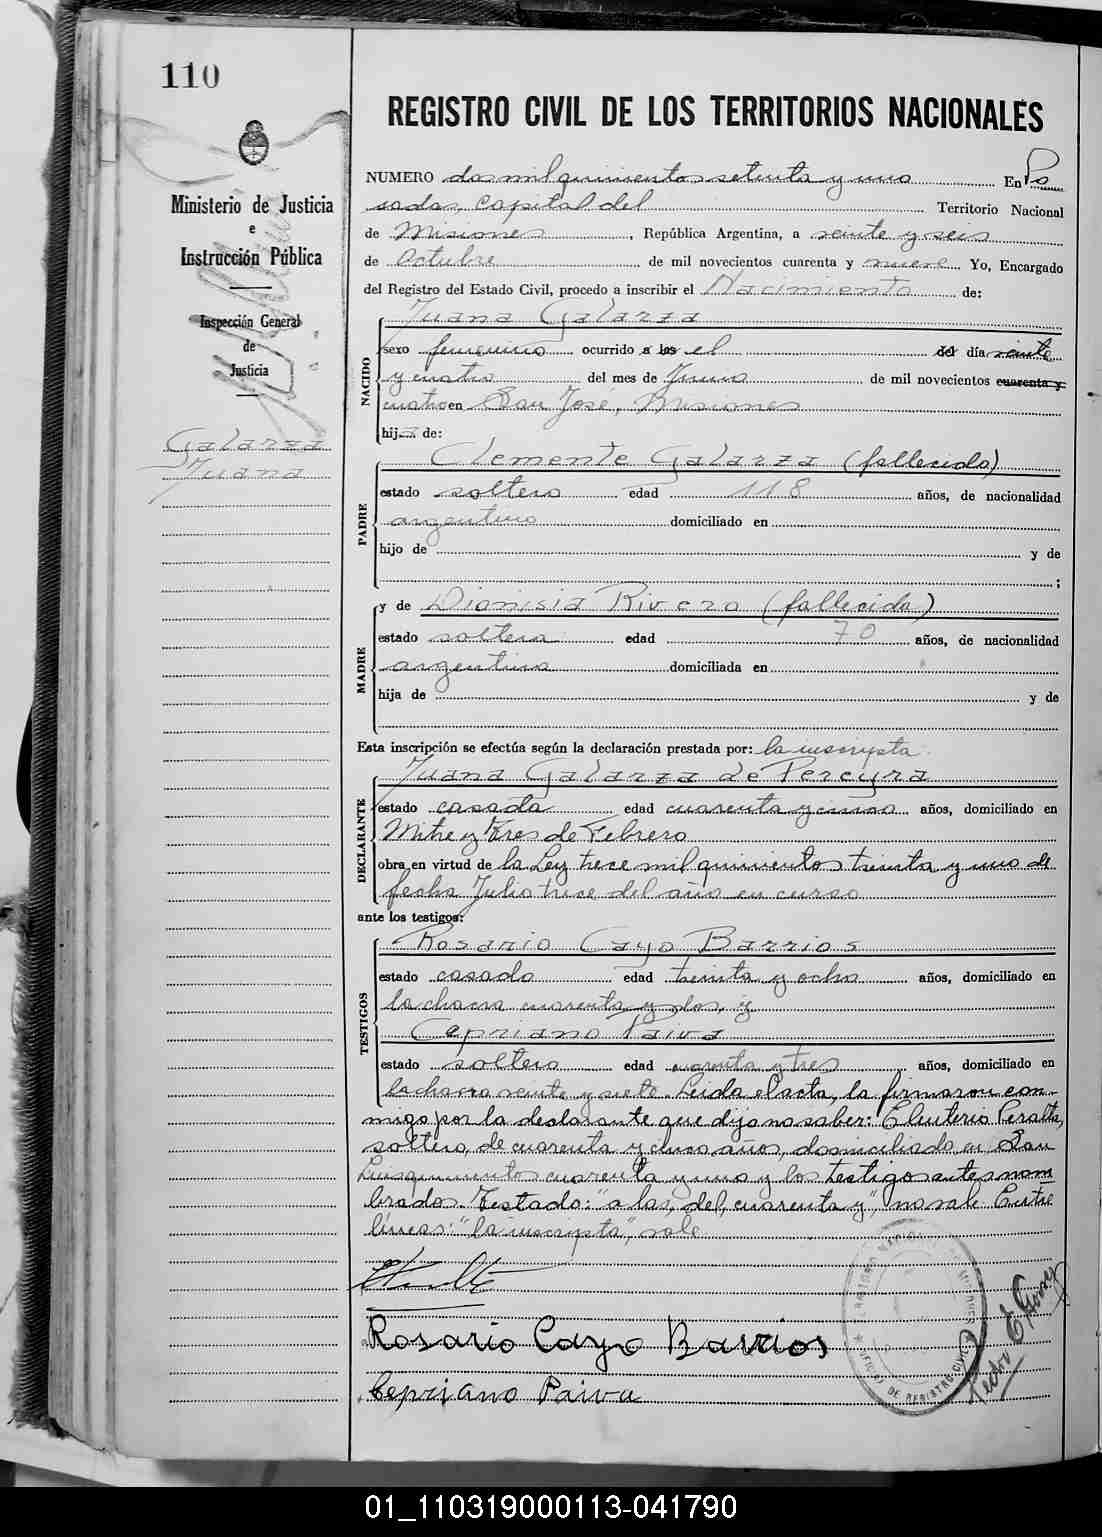 110
Ministerio de Justicia
e
Instrucción Pública
Inspección General
de
Justicia
Galarza
Juana
REGISTRO CIVIL DE LOS TERRITORIOS NACIONALES
NUMERO dos mil quinientos setenta y uno En Po
sadas, Capital del Territorio Nacional
de Misiones, República Argentina, a veinte y seis
de Octubre de mil novecientos cuarenta y nueve Yo, Encargado
del Registro del Estado Civil, procedo a inscribir el Nacimiento de:
NACIDO
Juana Galarza
sexo femenino ocurrido a las el del día veinte
y cuatro del mes de Junio de mil novecientos cuarenta y
cuatro en San José, Misiones
hija de:
PADRE
Clemente Galarza (fallecido)
estado soltero edad 118 años, de nacionalidad
argentino domiciliado en
hijo de y de
;
MADRE
y de Dionisia Rivero (fallecida)
estado soltera edad 70 años, de nacionalidad
argentina domiciliada en
hija de y de
Esta inscripción se efectúa según la declaración prestada por: la inscripta
DECLARANTE
Juana Galarza de Pereyra
estado casada edad cuarenta y cinco años, domiciliado en
Mitre y Tres de Febrero
obra en virtud de la Ley trece mil quinientos treinta y uno de
fecha Julio trece del año en curso
ante los testigos:
TESTIGOS
Rosario Cayo Barrios
estado casado edad treinta y ocho años, domiciliado en
la chacra cuarenta y dos, y
Cepriano Paiva
estado soltero edad cuarenta y tres años, domiciliado en
la chacra veinte y siete. Leida el acta, la firmaron con-
migo por la declarante que dijo no saber: Eleuterio Peralta,
soltero, de cuarenta y cinco años, domiciliado en San
Luis quinientos cuarenta y uno y los testigos antes nom
brados. Testado: "a las, del, cuarenta y", no vale. Entre
líneas: "la inscripta", vale
Rosario Cayo Barrios
Cepriano Paiva
TERRITORIO NACIONAL DE MISIONES
OFICINA DE REGISTRO CIVIL
01_110319000113-041790